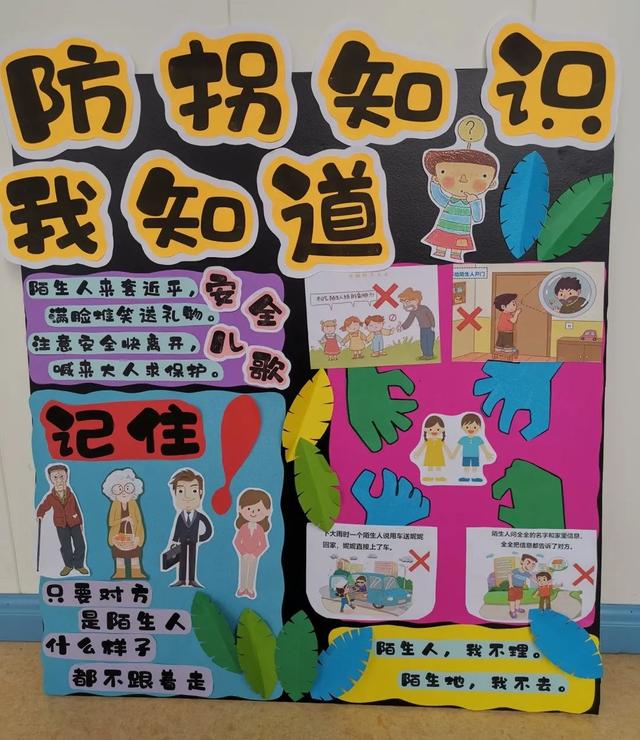 防拐知识
我知道
陌生人来套近乎，
满脸堆笑送礼物。
注意安全快离开，
喊来大人求保护。
安全儿歌
不吃陌生人给的食物!
陌生人开门
记住！
只要对方
是陌生人
什么样子
都不跟着走
下大雨时一个陌生人说用车送妮妮
回家，妮妮直接上了车。
陌生人问全全的名字和家里信息，
全全把信息都告诉了对方。
陌生人，我不理。
陌生地，我不去。
?